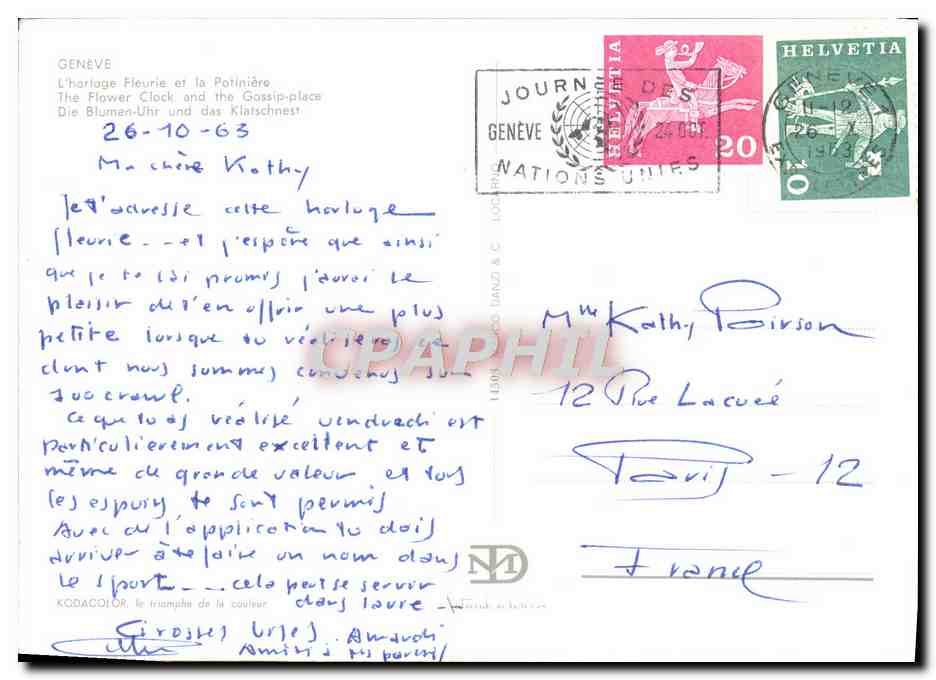 GENÈVE
L'horloge Fleurie et la Potinière
The Flower Clock and the Gossip-place
Die Blumen-Uhr und das Klatschnest
26-10-63
Ma chère Kathy
Je t'adresse cette horloge
fleurie -- et j'espère que ainsi
que je te l'ai promis j'aurai le
plaisir de t'en offrir une plus
petite lorsque tu réaliseras ce
dont nous sommes convenus sur
100 crawl.
Ce que tu as réalisé vendredi est
particulièrement excellent et
même de grande valeur et tous
les espoirs te sont permis
Avec de l'application tu dois
arriver à te faire un nom dans
le sport --- cela peut se servir
dans la vie
KODACOLOR, le triomphe de la couleur
Grosses bises. A mardi
Amitiés à tes parents
JOURNÉE DES
GENÈVE 24 OCT.
NATIONS UNIES
HELVETIA
20
HELVETIA
10
GENÈVE 1
11-12
26 X
1963
14303 DANZI & C LOCARNO
CPAPHIL
Mlle Kathy Poirson
12 Rue Lacuée
Paris - 12
France